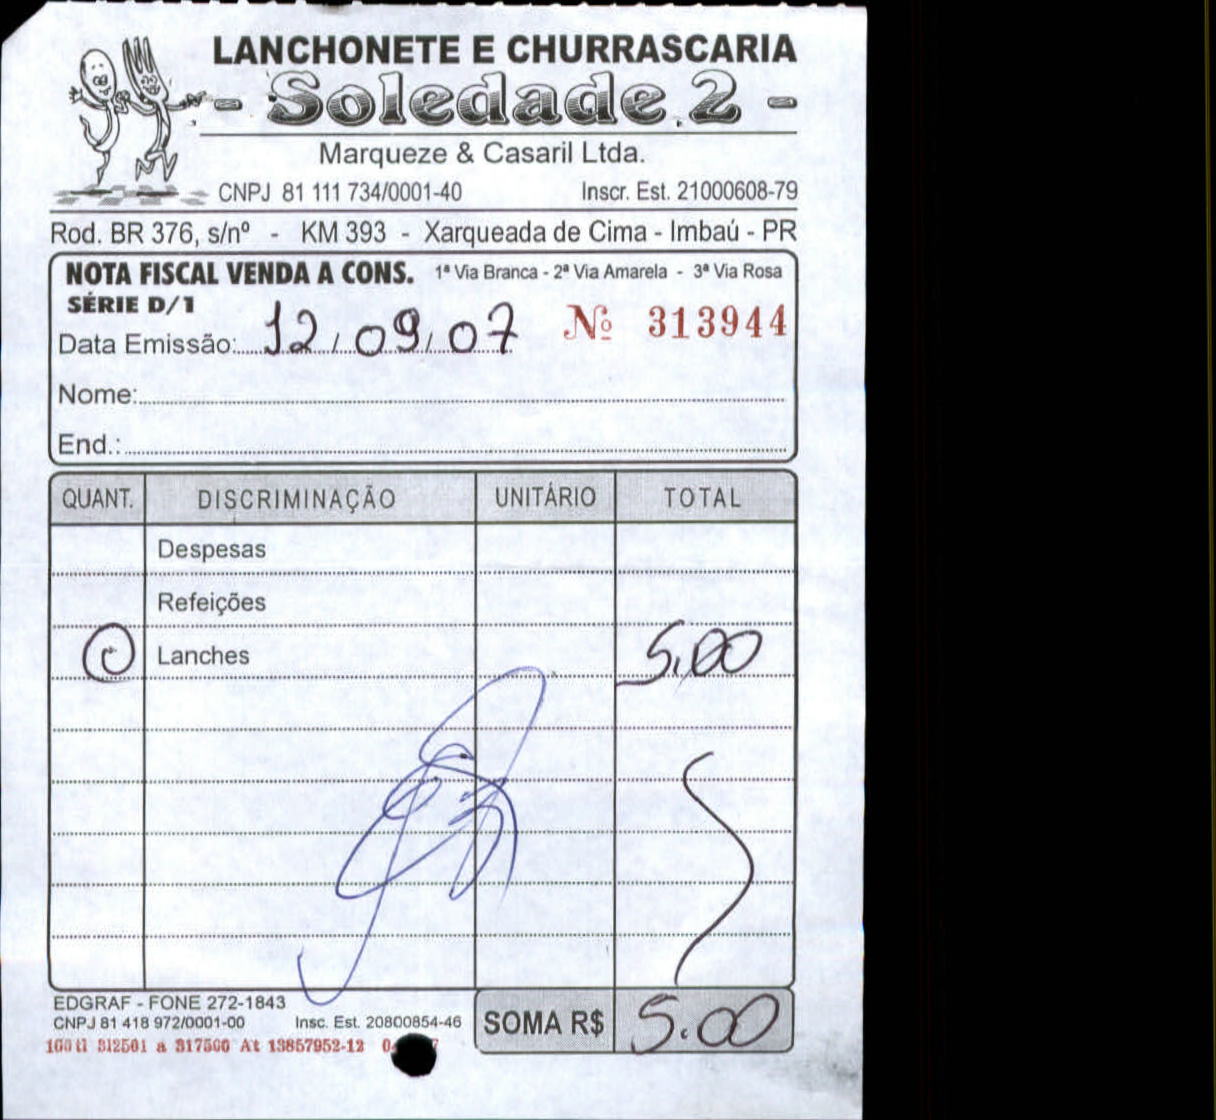 LANCHONETE E CHURRASCARIA
- Soledade 2 -
Marqueze & Casaril Ltda.
CNPJ 81 111 734/0001-40 Inscr. Est. 21000608-79
Rod. BR 376, s/nº - KM 393 - Xarqueada de Cima - Imbaú - PR
NOTA FISCAL VENDA A CONS. 1ª Via Branca - 2ª Via Amarela - 3ª Via Rosa
SÉRIE D/1
Nº 313944
Data Emissão: 12/09/07
Nome:
End.:
QUANT. DISCRIMINAÇÃO UNITÁRIO TOTAL
Despesas
Refeições
Lanches 5,00
EDGRAF - FONE 272-1843
CNPJ 81 418 972/0001-00 Insc. Est. 20800854-46
SOMA R$ 5.00
312501 a 317500 At 13857952-12